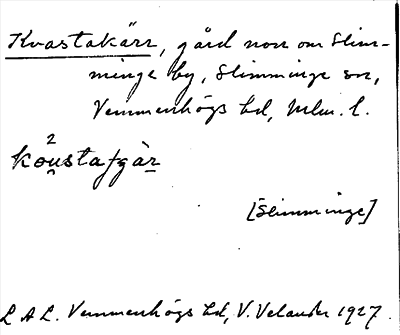 Kvastakärr, gård norr om Slim-
minge by, Slimminge sn,
Vemmenhögs hd, Mlm. l.
2
[Slimminge]
L A L. Vemmenhögs hd, V. Velander 1927.